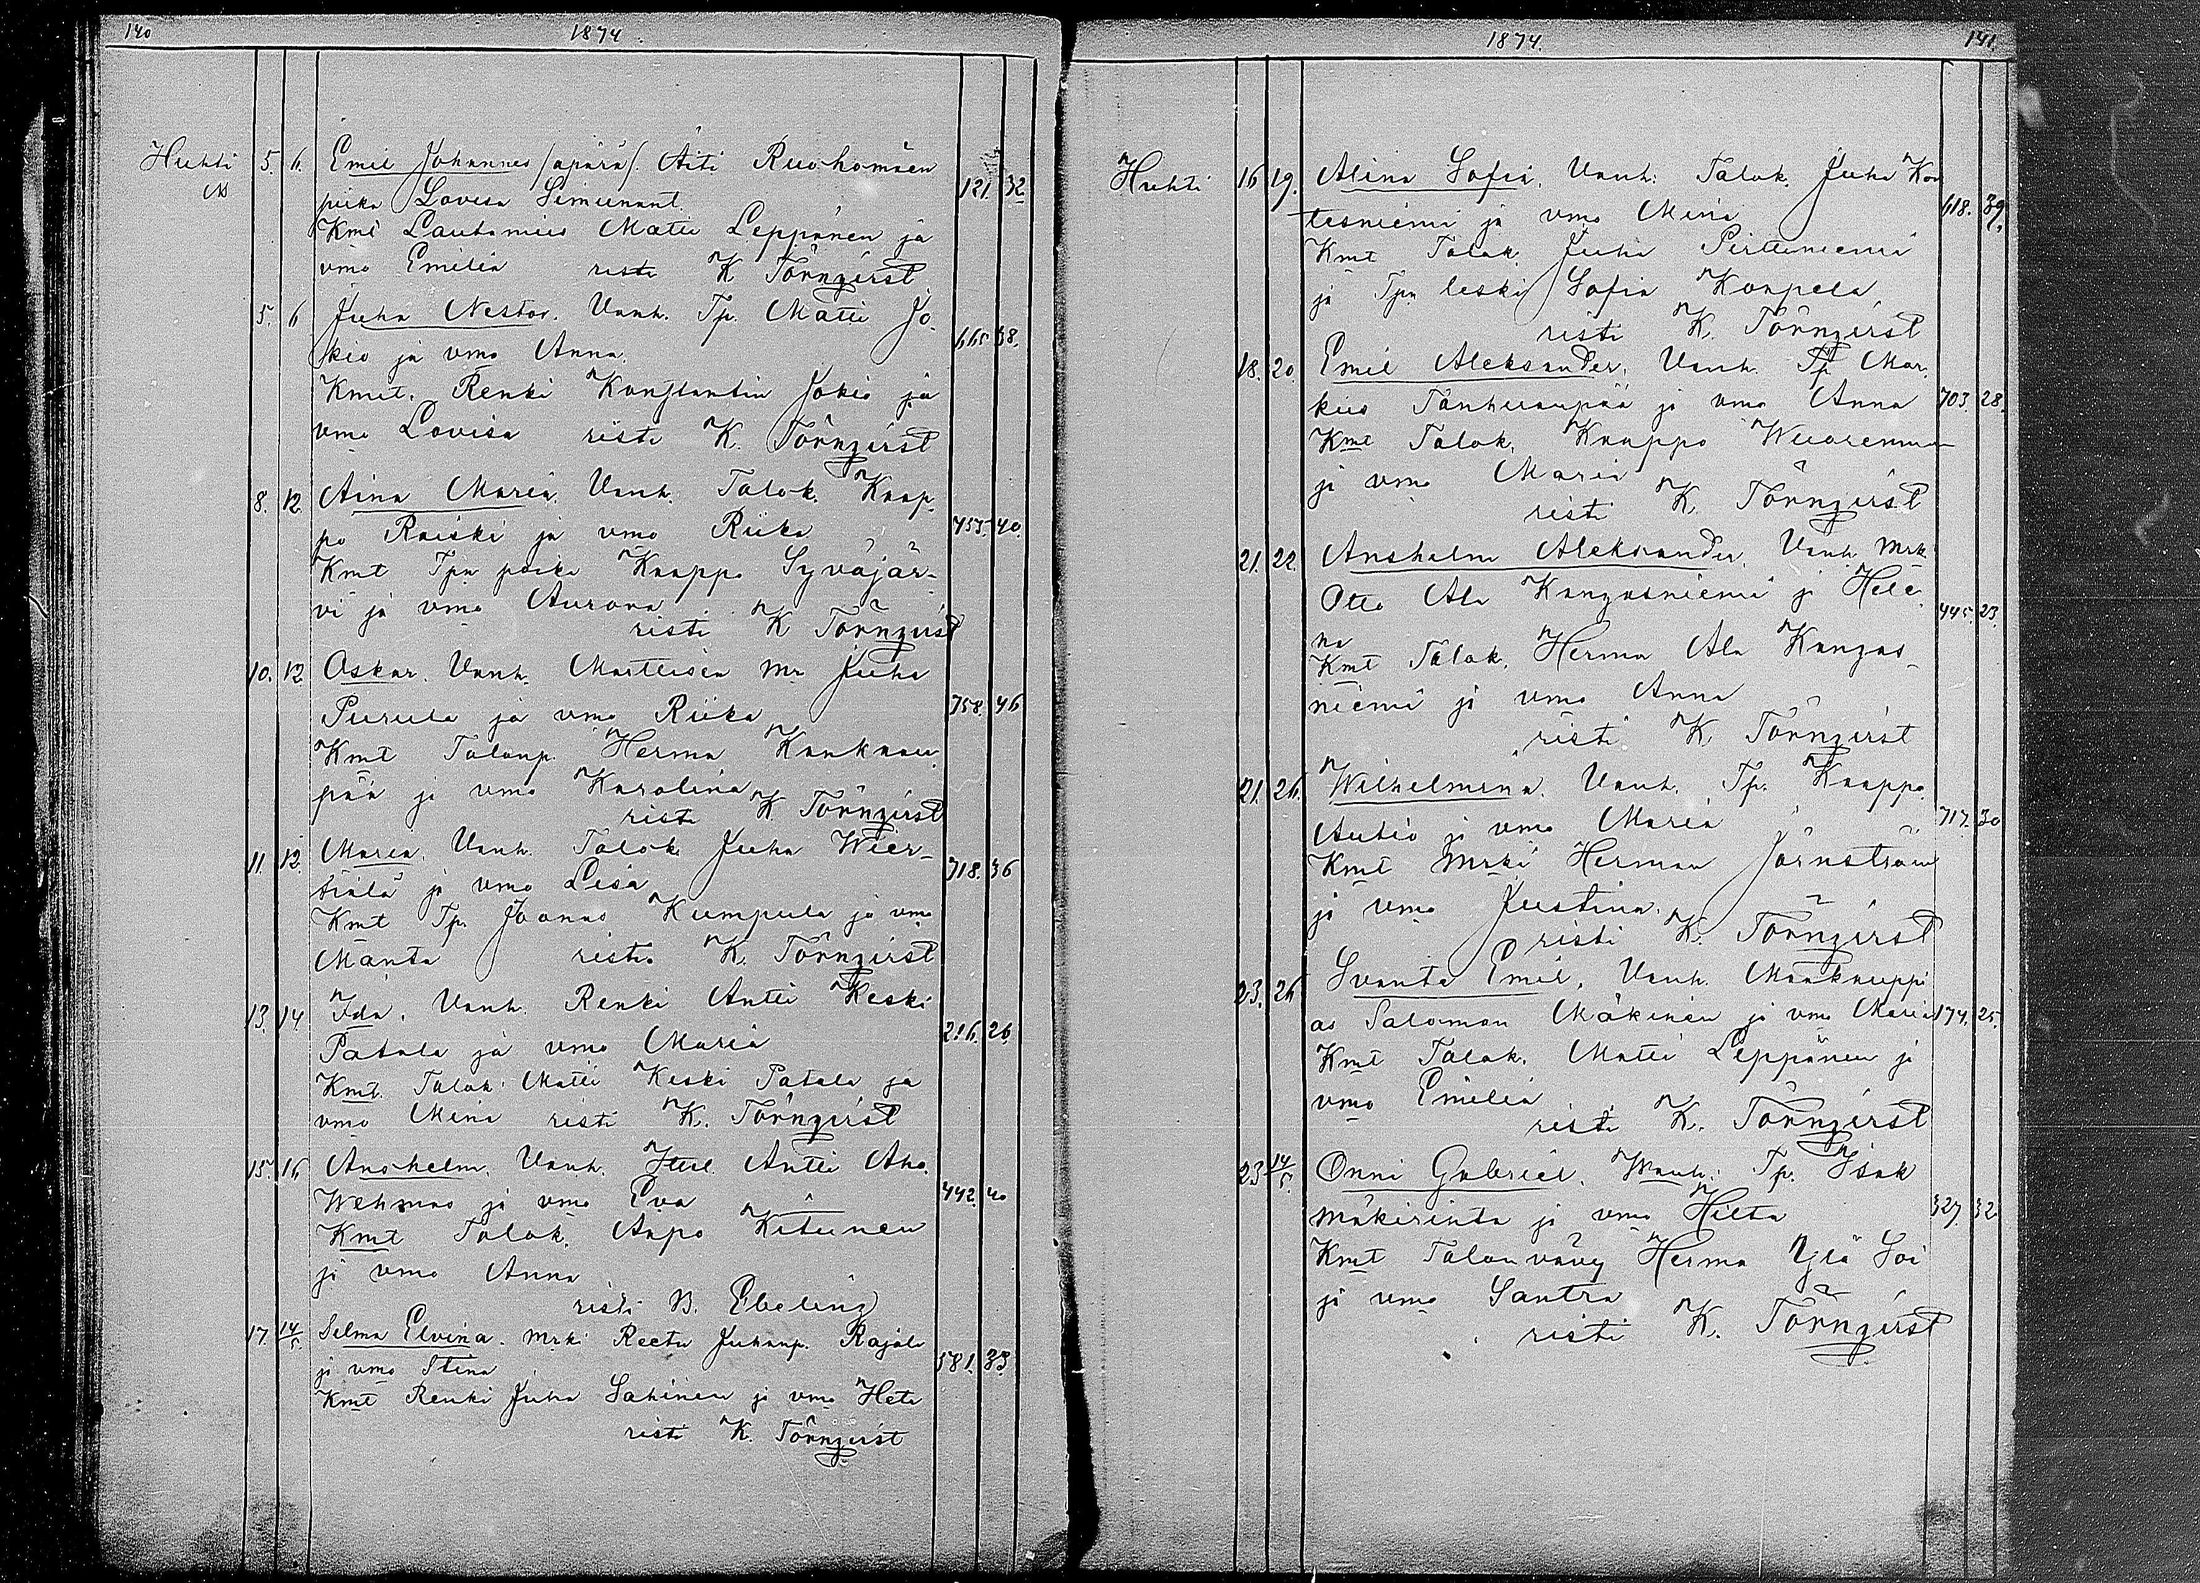 140 1874.
Huhti 5. 6. Emil Johannes /äpärä/. Äiti Ruohomäen
piika Lovisa Simunant. 121. 32
Kmt Lautamies Matti Leppänen ja
vmo Emilia risti K Törnqvist
5. 6 Juha Nestor. Vanh. Tp. Matti Jo-
kio ja vmo Anna. 665 38.
Kmt. Renki Konstantin Jokio ja
vmo Lovisa risti K. Törnqvist
8. 12 Aina Maria. Vanh. Talok. Kaap-
po Raiski ja vmo Riika 753. 40.
Kmt Tpn poika Kaappo Syväjär-
vi ja vmo Aurora
risti K Törnqvist
10. 12 Oskar. Vanh. Mattlisen Mr Juha
Purula ja vmo Riika 758. 46
Kmt Talonp. Herma Kankaan-
pää ja vmo Karolina
risti K Törnqvist
11. 12. Maria. Vanh. Talok. Juha Wier-
tiälä ja vmo Lisa 718. 36
Kmt Tp. Joonas Kumpula ja vmo
Manta risti K. Törnqvist
13. 14 Ida. Vanh. Renki Antti Keski
Patala ja vmo Maria 216. 26.
Kmt. Talok. Matti Keski Patala ja
vmo Mina risti K. Törnqvist
15. 16 Anshelm. Vanh. Itsel. Antti Aho
Wehmas ja vmo Eva 442. 40
Kmt Talok. Aapo Kitunen
ja vmo Anna
risti B. Ebeling
17. 14/5. Selma Elvina. Mrk. Reetu Juhanp. Rajala
ja vmo Stina 581. 33.
Kmt Renki Juha Sahinen ja vmo Heta
risti K. Törnqvist
1874. 141.
Huhti 16 19. Alina Sofia. Vanh. Talok. Juha Kon
tesniemi ja vmo Mina 618. 39.
Kmt Talok. Juha Pirttiniemi
ja Tpn leski Sofia Konpela
risti K. Törnqvist
18. 20. Emil Aleksander. Vanh. Tp Mar-
kus Tanhuanpää ja vmo Anna 703. 28.
Kmt Talok. Kaappo Wuorenmaa
ja vmo Maria
risti K. Törnqvist
21. 22. Anshelm Aleksander. Vanh. Mrk
Otto Ala Kangasniemi ja Hele-
na 445. 23
Kmt Talok. Herma Ala Kangas-
niemi ja vmo Anna
risti K Törnqvist
21. 26. Wilhelmina. Vanh. Tp. Kaappo
Autio ja vmo Maria 717. 30
Kmt Mrki Herman Jörnström
ja vmo Justina.
risti K. Törnqvist
23. 26 Svante Emil. Vanh. Maakauppi
as Salomon Mäkinen ja vmo Maria 174. 25.
Kmt Talok. Matti Leppänen ja
vmo Emilia
risti K. Törnqvist
23 14/5. Onni Gabriel. Wanh. Tp. Isak
Mäkirinta ja vmo Hilta 327 32.
Kmt Talon vävy Herma Ylä Soi
ja vmo Santra
risti K. Törnqvist